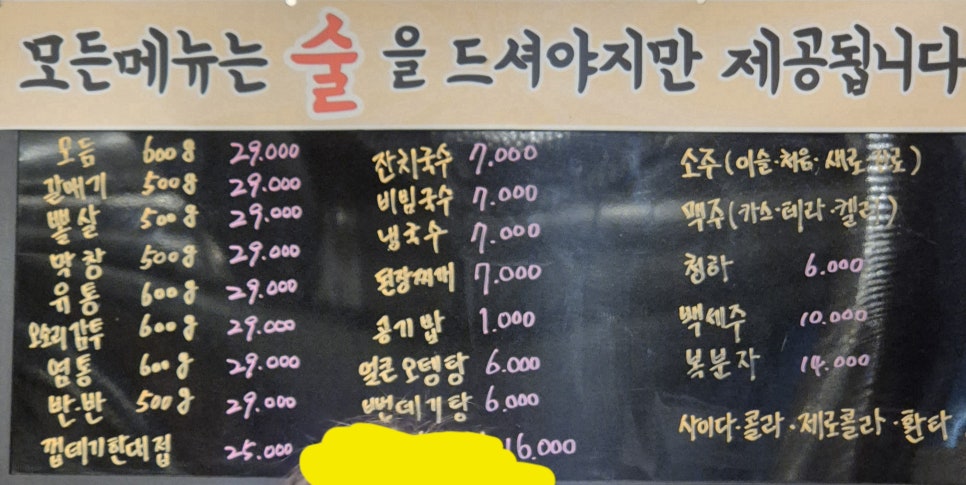 모든메뉴는 술을 드셔야지만 제공됩니다
모듬 600g 29.000
갈매기 500g 29.000
뽈살 500g 29.000
막창 500g 29.000
유통 600g 29.000
오소리감투 600g 29.000
염통 600g 29.000
반·반 500g 29.000
껍데기한대접 25.000
잔치국수 7.000
비빔국수 7.000
냉국수 7.000
된장찌개 7.000
공기밥 1.000
얼큰오뎅탕 6.000
뻔데기탕 6.000
16.000
소주(이슬·처음·새로
맥주(카스·테라·켈리)
청하 6.000
백세주 10.000
복분자 14.000
사이다·콜라·제로콜라·환타